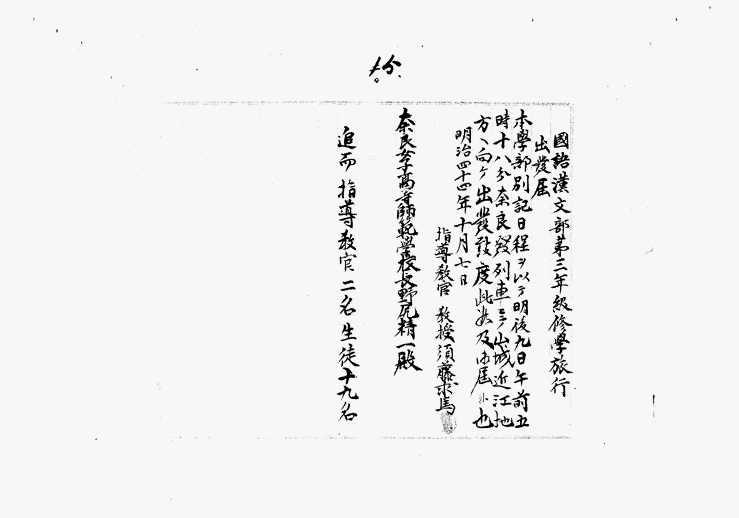 十八分
國語漢文部第三年級修學旅行
出發屆
本學部別記日程ヲ以テ明後九日午前五
時十八分奈良發列車ニテ山城近江地
方ヘ向ケ出發致度此段及御屆候也
明治四十四年十月七日
指導教官 教授 須藤求馬
奈良女子高等師範學校長野尻精一殿
追而 指導教官 二名 生徒十九名